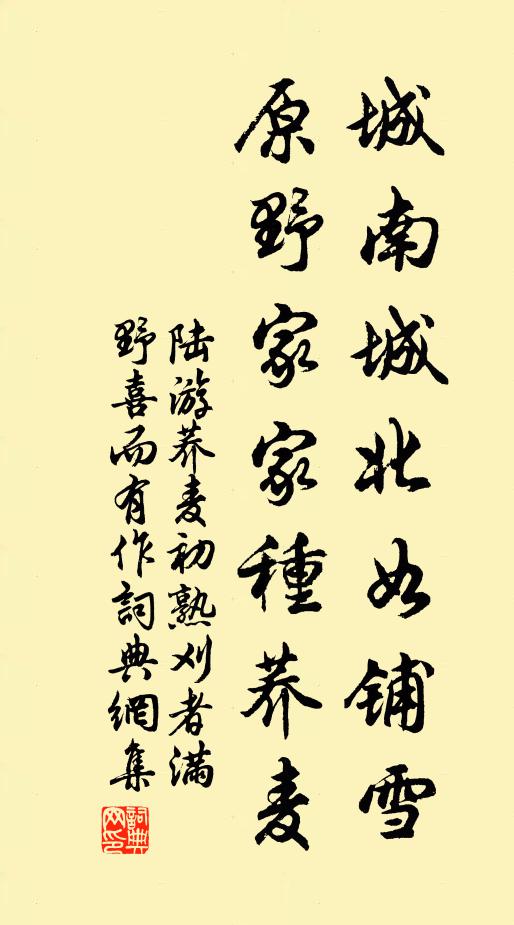 城南城北如铺雪
原野家家種荞麦
陆游荞麦初熟刈者满
野喜而有作詞典網集
詞典
网印